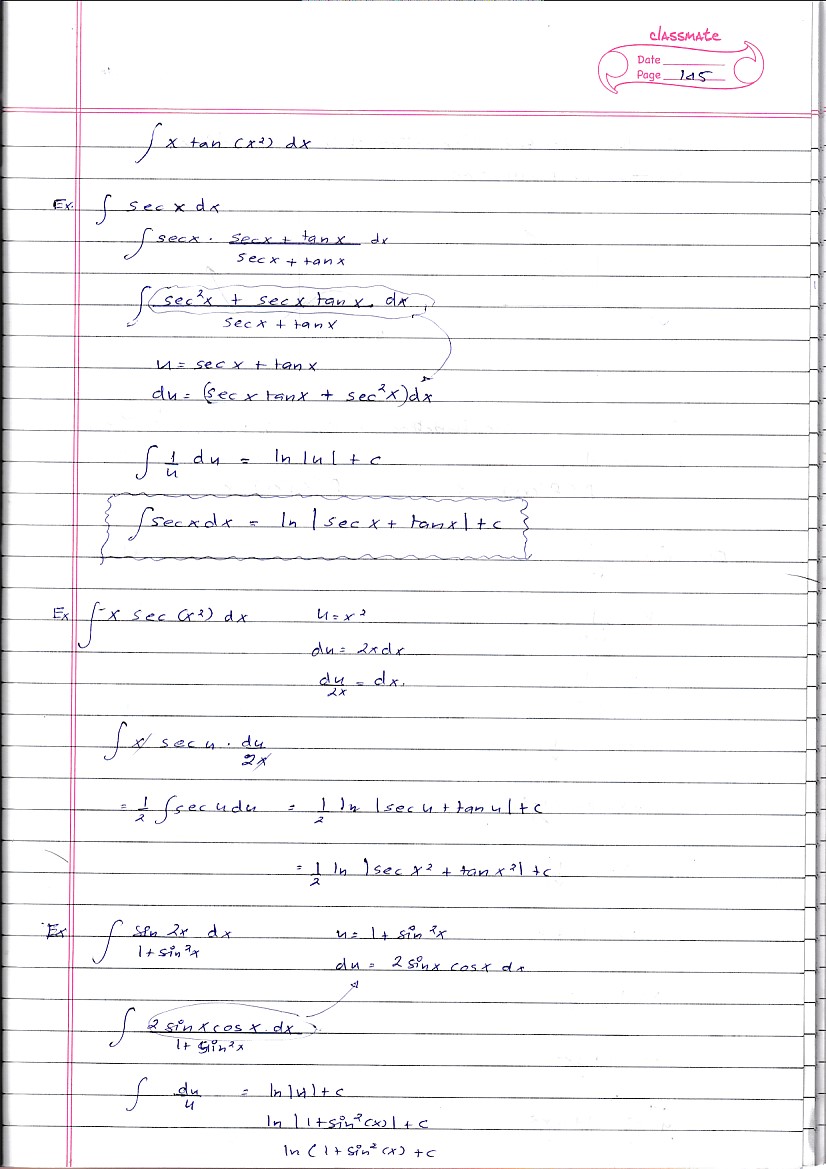 classmate
Date
Page 145
∫ x tan (x²) dx
Ex. ∫ sec x dx
∫ secx · (secx + tanx)/(secx + tanx) dx
∫ (sec²x + secx tanx · dx)/(secx + tanx)
u = secx + tanx
du = (secx tanx + sec²x)dx
∫ 1/u du = ln|u| + c
∫secxdx = ln |secx + tanx| + c
Ex ∫ x sec (x²) dx u = x²
du = 2xdx
du/2x = dx.
∫ x sec u · du/2x
= 1/2 ∫sec u du = 1/2 ln |sec u + tan u| + c
= 1/2 ln |sec x² + tan x²| + c
Ex ∫ sin 2x/(1+sin²x) dx u = 1 + sin²x
du = 2 sinx cosx dx
∫ (2 sinx cosx · dx)/(1 + sin²x)
∫ du/u = ln|u| + c
ln |1+sin²(x)| + c
ln (1 + sin²(x) + c